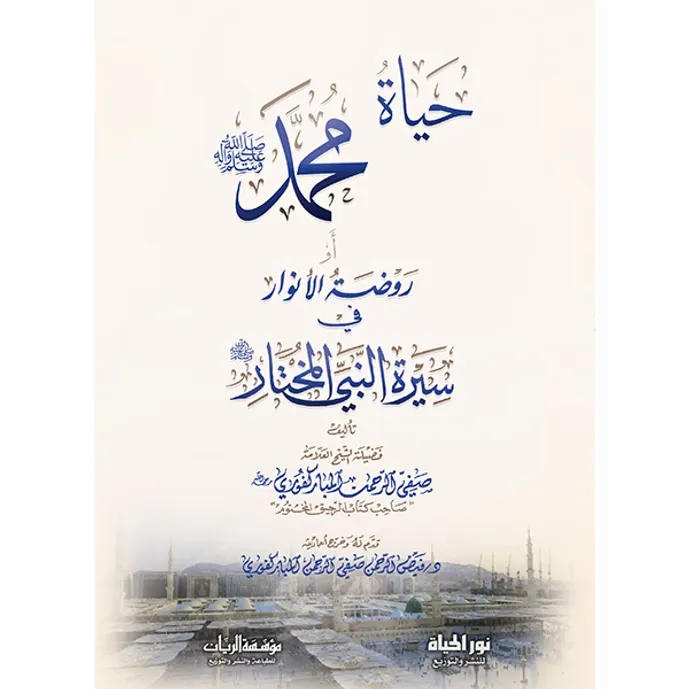 حَيَاةُ
مُحَمَّد صَلَّى اللهُ عَلَيْهِ وَآلِهِ وَسَلَّم
أَوْ
رَوْضَةُ الأَنْوَار
فِي
سِيرَةِ النَّبِيِّ المُخْتَارِ ﷺ
تأليف
فضيلة الشيخ العلامة
صفيّ الرحمن المباركفوري رحمه الله
"صاحب كتاب الرحيق المختوم"
قدم له وخرج أحاديثه
د/ فيض الرحمن صفيّ الرحمن المباركفوري
نور الحياة
للنشر والتوزيع
مؤسسة الريان
للطباعة والنشر والتوزيع